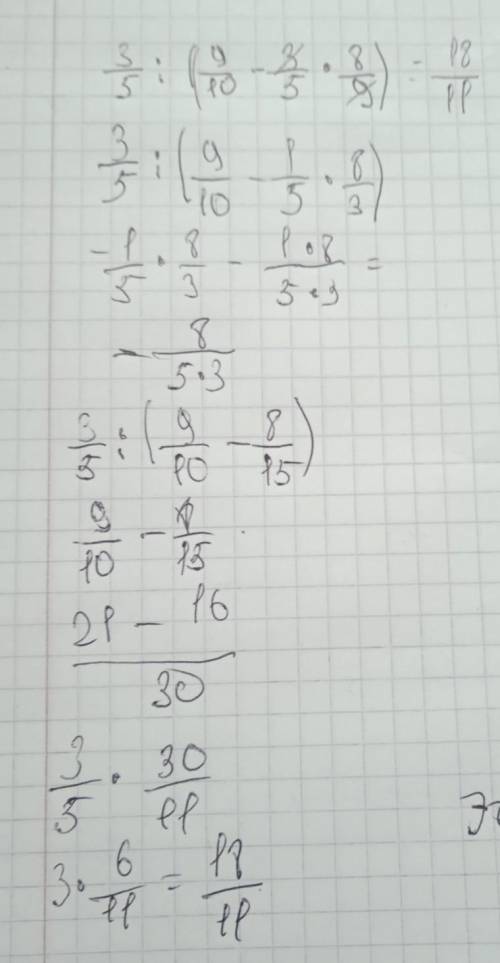 3/5 : (9/10 - 3/5 · 8/9) = 18/11
3/5 : (9/10 - 1/5 · 8/3)
-1/5 · 8/3 - (1·8)/(5·3) =
- 8/(5·3)
3/5 : (9/10 - 8/15)
9/10 - /15
(21 - 16)/30
3/5 · 30/11
3 · 6/11 = 18/11